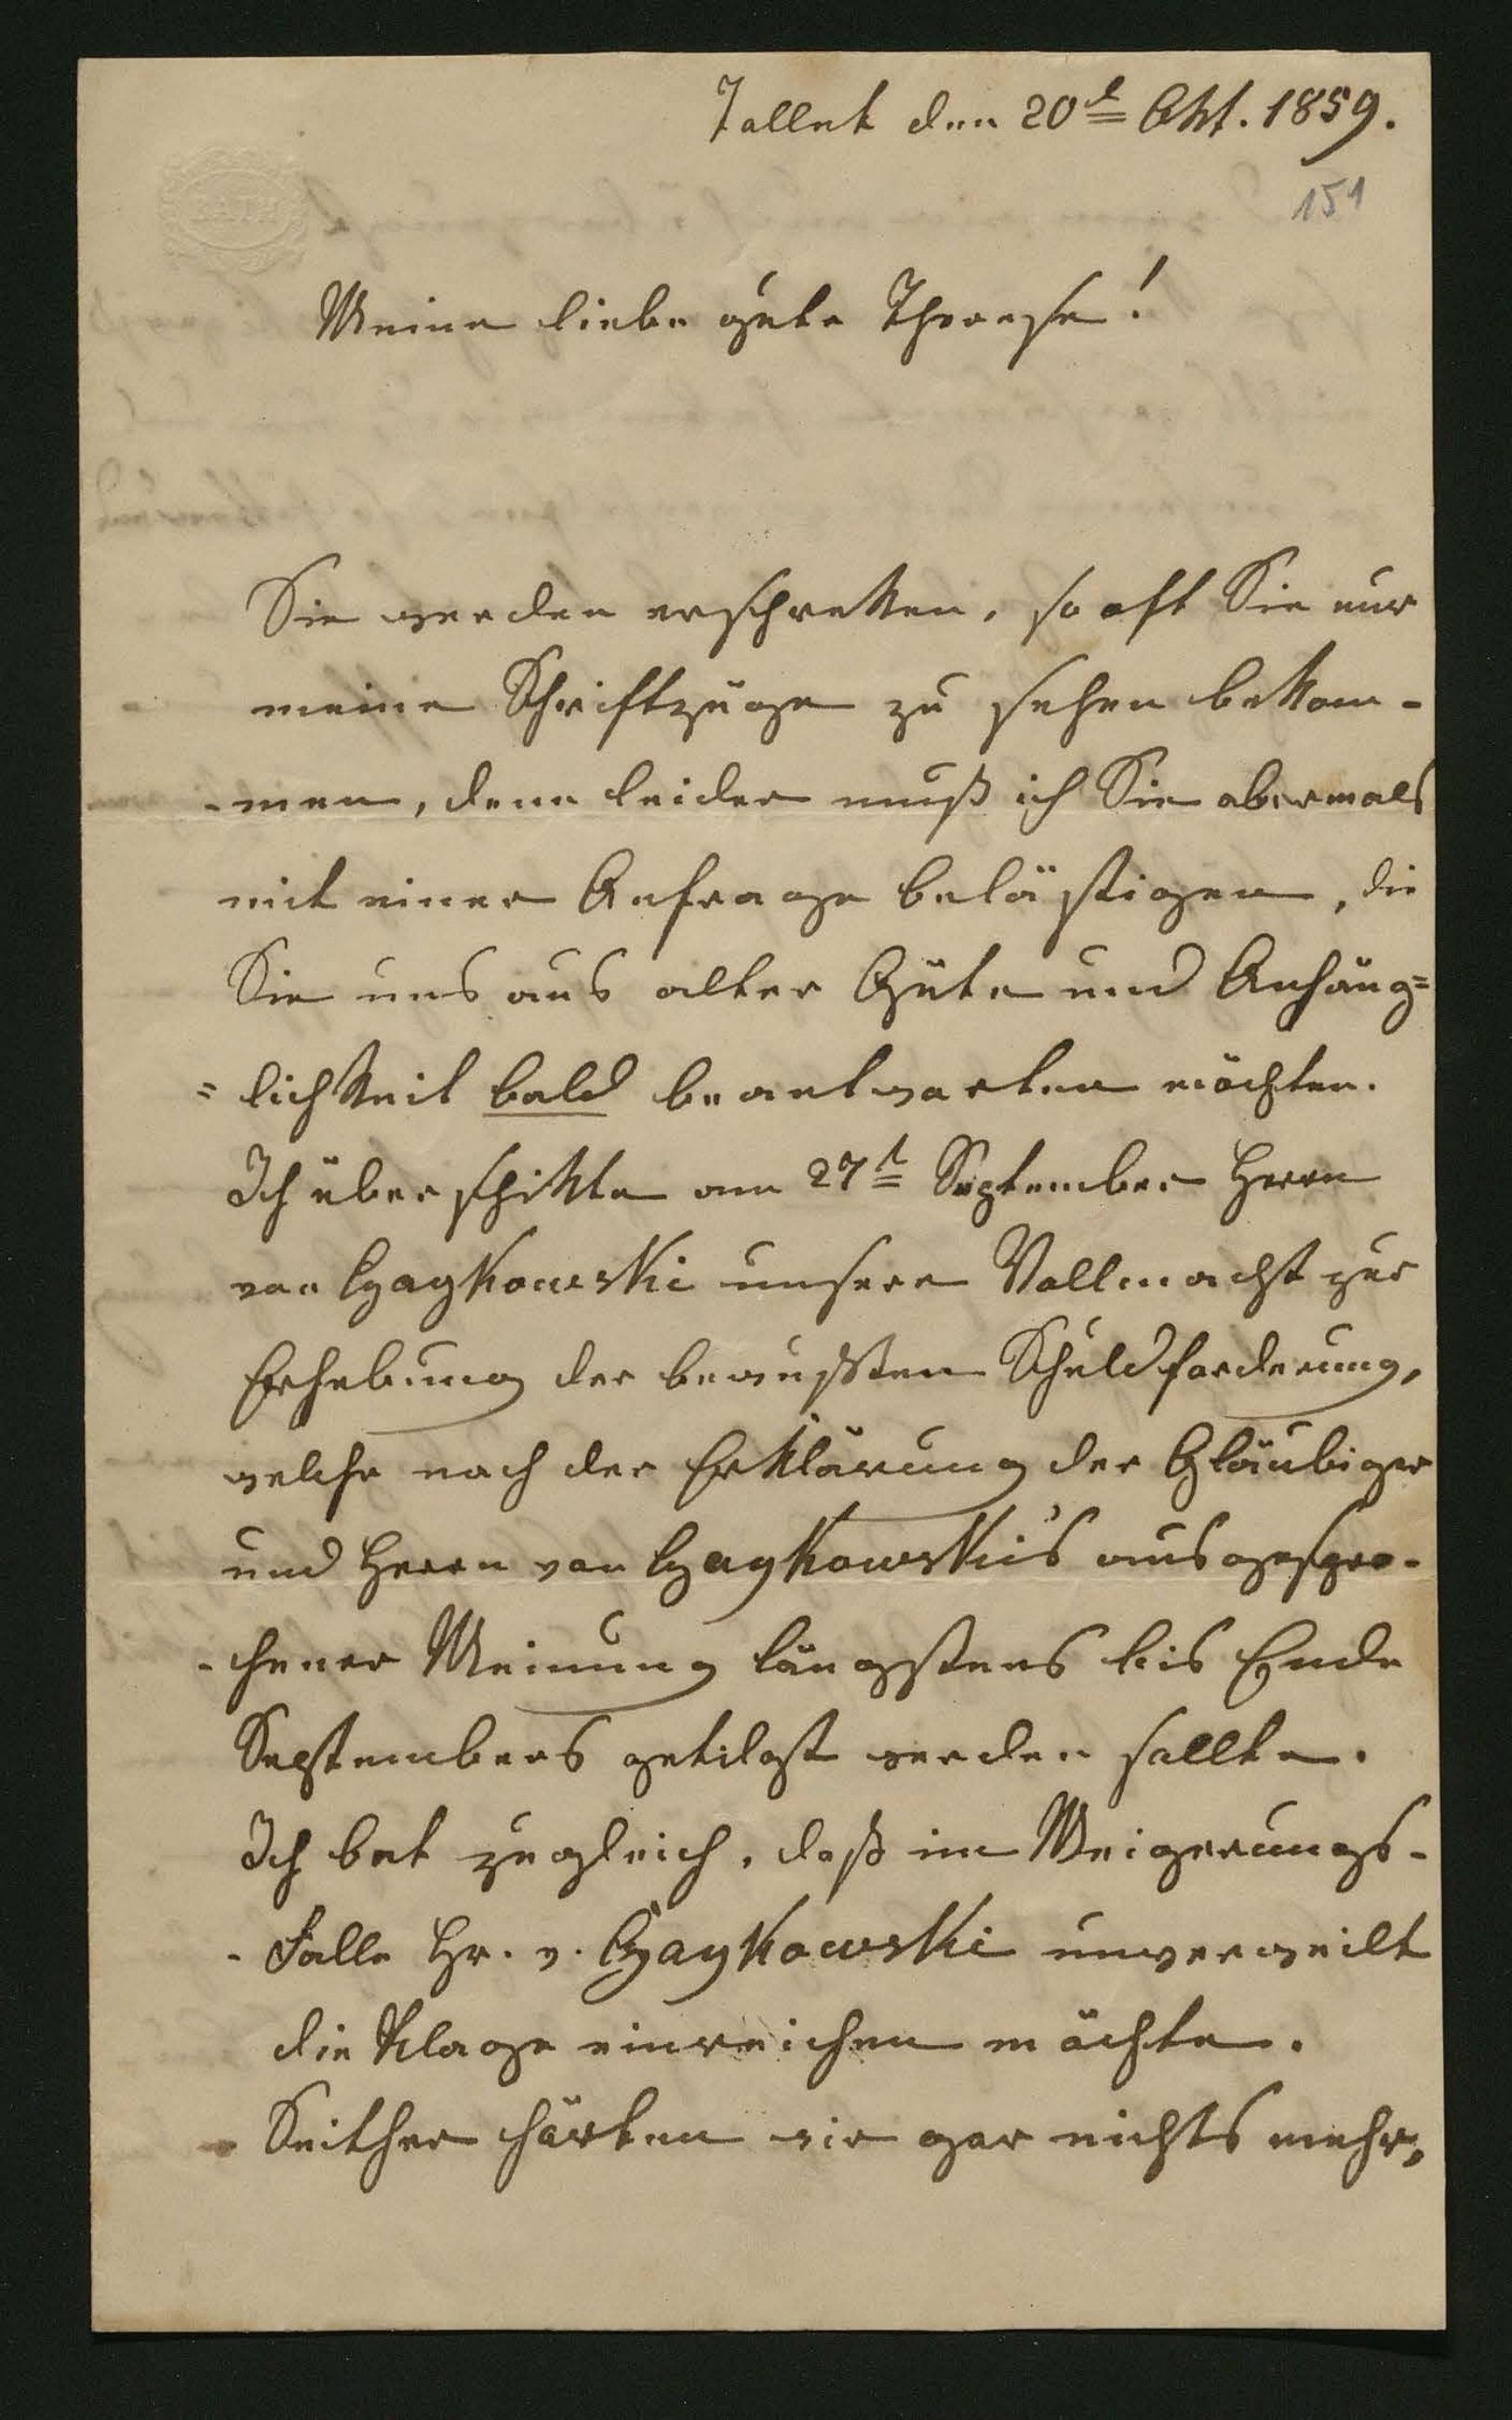 Tallet den 20t Okt. 1859.
151
BATH
Meine liebe gute Therese!
Sie werden erschrekken, so oft Sie nur
meine Schriftzüge zu sehen bekom-
-men, denn leider muß ich Sie abermals
mit einer Anfrage belästigen, die
Sie uns aus alter Güte und Anhäng=
=lichkeit bald beantworten möchten.
Ich überschikte am 27t September Herrn
von Czaykowski unsere Vollmacht zur
Erhebung der bewußten Schuldforderung,
welche nach der Erklärung der Gläubiger
und Herrn von Czaykowski's ausgespro-
-chener Meinung längstens bis Ende
Septembers getilgt werden sollte.
Ich bat zugleich, daß im Weigerungs-
-Falle Hr. v. Czaykowski unverweilt
die Klage einreichen möchte.
Seither hörten wir gar nichts mehr,